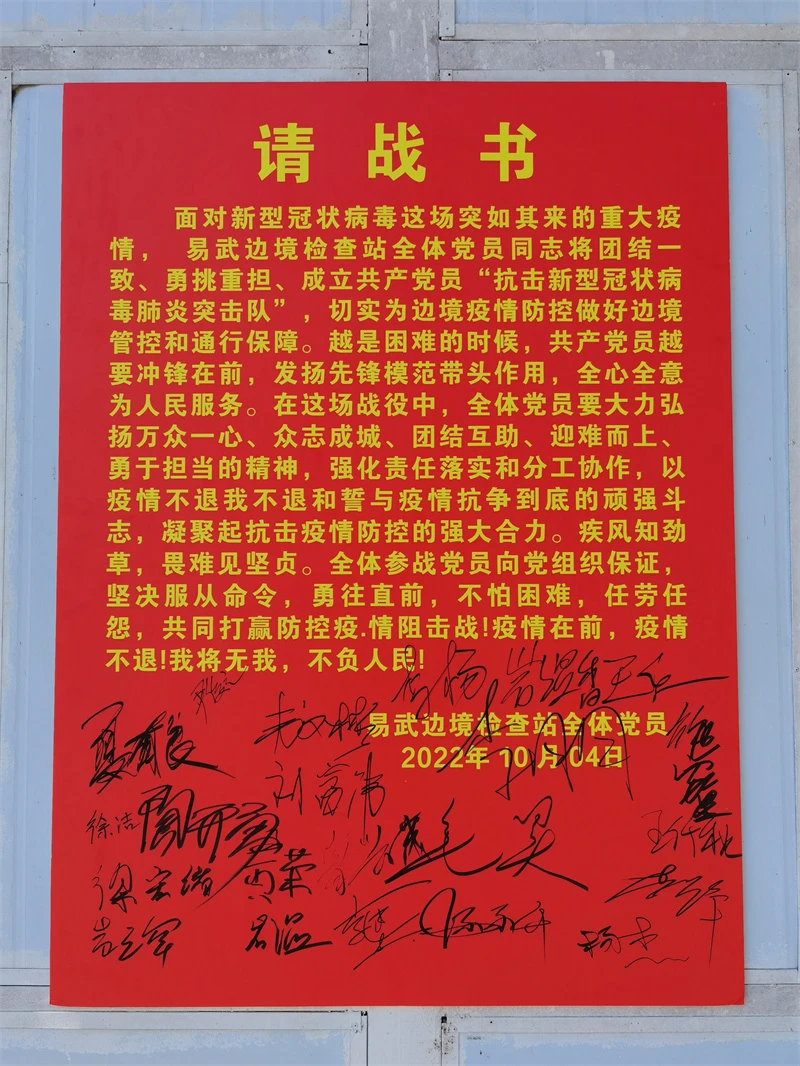 请战书
面对新型冠状病毒这场突如其来的重大疫
情， 易武边境检查站全体党员同志将团结一
致、勇挑重担、成立共产党员“抗击新型冠状病
毒肺炎突击队”，切实为边境疫情防控做好边境
管控和通行保障。越是困难的时候，共产党员越
要冲锋在前，发扬先锋模范带头作用，全心全意
为人民服务。在这场战役中，全体党员要大力弘
扬万众一心、众志成城、团结互助、迎难而上、
勇于担当的精神，强化责任落实和分工协作，以
疫情不退我不退和誓与疫情抗争到底的顽强斗
志，凝聚起抗击疫情防控的强大合力。疾风知劲
草，畏难见坚贞。全体参战党员向党组织保证，
坚决服从命令，勇往直前，不怕困难，任劳任
怨，共同打赢防控疫.情阻击战!疫情在前，疫情
不退!我将无我，不负人民!
易武边境检查站全体党员
2022年 10月 04日
徐洁
杨杰